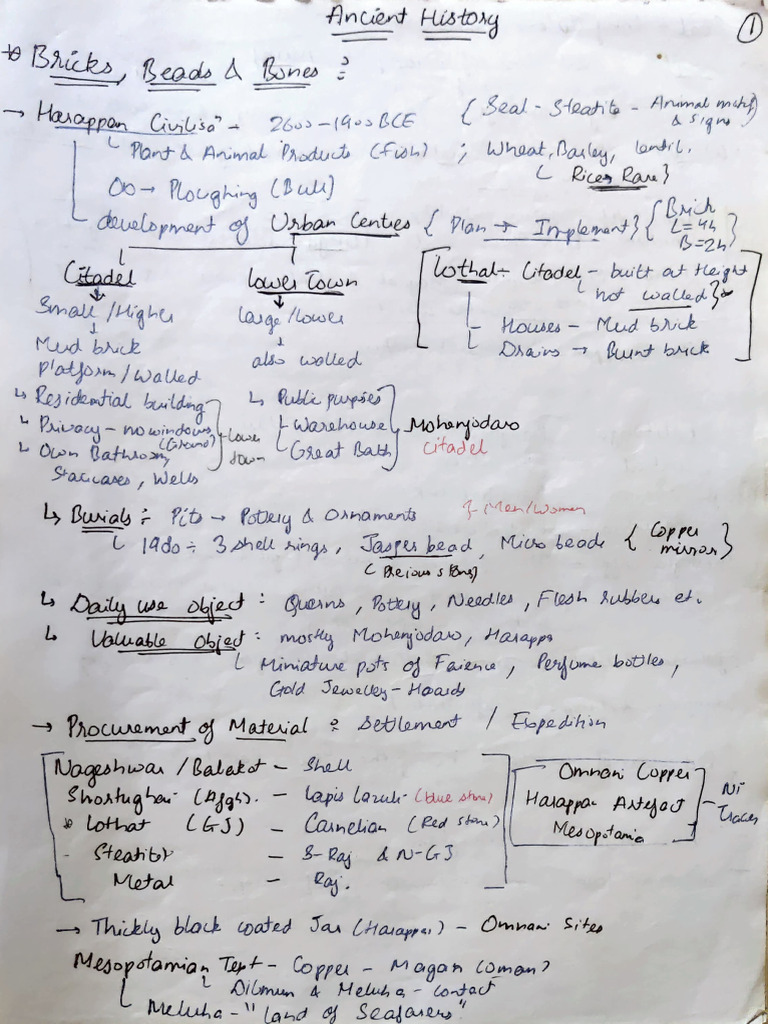 Ancient History
1
Bricks, Beads & Bones :
→ Harappan Civilisaⁿ - 2600-1900 BCE { Seal - Steatite - Animal motif & signs }
Plant & Animal Products (Fish) ; Wheat, Barley, lentil,
Rice Rare }
Ox → Ploughing (Bull)
development of Urban Centres { Plan → Implement } { Brick L=4h B=2h }
Citadel
Small / Higher
Mud brick platform / Walled
Lower Town
large / lower
also walled
[ Lothal - Citadel - built at Height
not walled }
Houses - Mud brick
Drains → Burnt brick ]
↳ Residential building
↳ Privacy - no windows (Ground)
↳ Own Bathroom,
Staircases, Wells
Lower Town
↳ Public purposes
Warehouse
Great Bath
Mohenjodaro
Citadel
↳ Burials ÷ Pits → Pottery & Ornaments } - Men/Women
1980 ÷ 3 shell rings, Jasper bead, Micro beads { Copper mirror }
(Precious stone)
↳ Daily use object : Querns, Pottery, Needles, Flesh rubbers etc.
↳ Valuable object : mostly Mohenjodaro, Harappa
Miniature pots of Faience, Perfume bottles,
Gold Jewellery - Hoards
→ Procurement of Material : Settlement / Expedition
Nageshwar / Balakot - Shell
Shortughai (Afgh). - Lapis lazuli (blue stone)
Lothal (GJ) - Carnelian (Red stone)
Steatite - S-Raj & N-GJ
Metal - Raj.
Omnani Copper
Harappan Artefact
Mesopotamia
- Ni Traces
→ Thickly black coated Jar (Harappan) - Omnani Sites
Mesopotamian Text - Copper - Magan (Oman)
Dilmun & Meluha - contact
Meluha - "land of Seafarers"